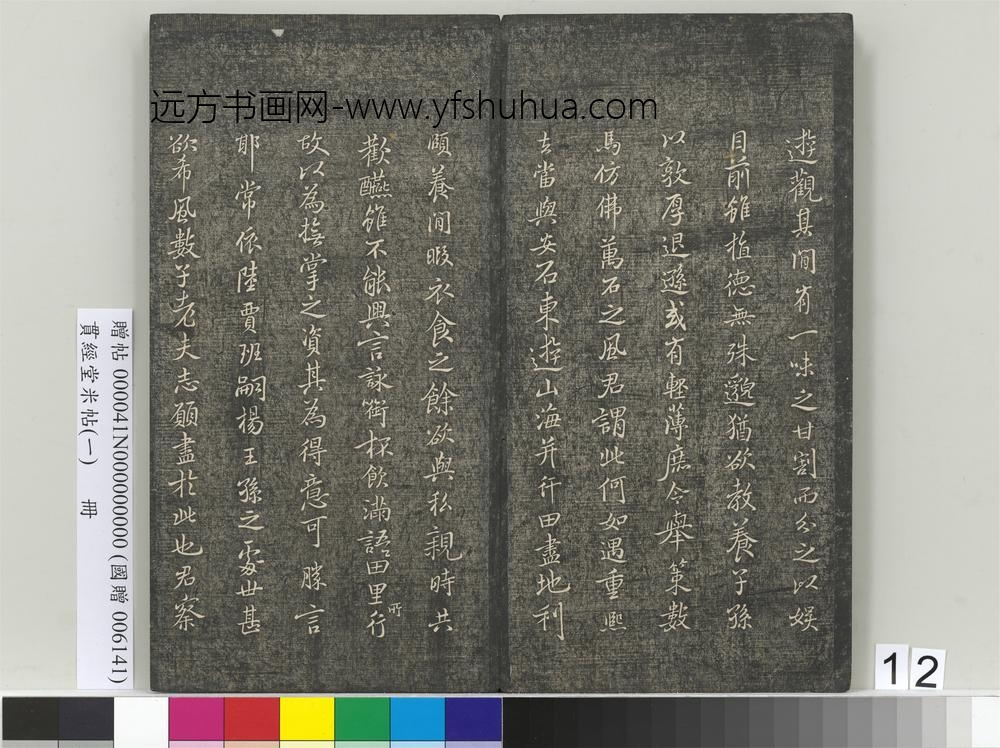 远方书画网-www.yfshuhua.com
遊觀其間有一味之甘割而分之以娛
目前雖植德無殊邈猶欲教養子孫
以敦厚退遜或有輕薄庶令舉策數
馬仿佛萬石之風君謂此何如遇重熙
去當與安石東遊山海并行田盡地利
頤養閒暇衣食之餘欲與私親時共
歡醼雖不能興言詠銜杯飲滿語田里所行
故以為撫掌之資其為得意可勝言
耶常依陸賈班嗣楊王孫之處世甚
欲希風數子老夫志願盡於此也君察
贈帖 000041N000000000 (國贈 006141)
貫經堂米帖(一) 冊
12